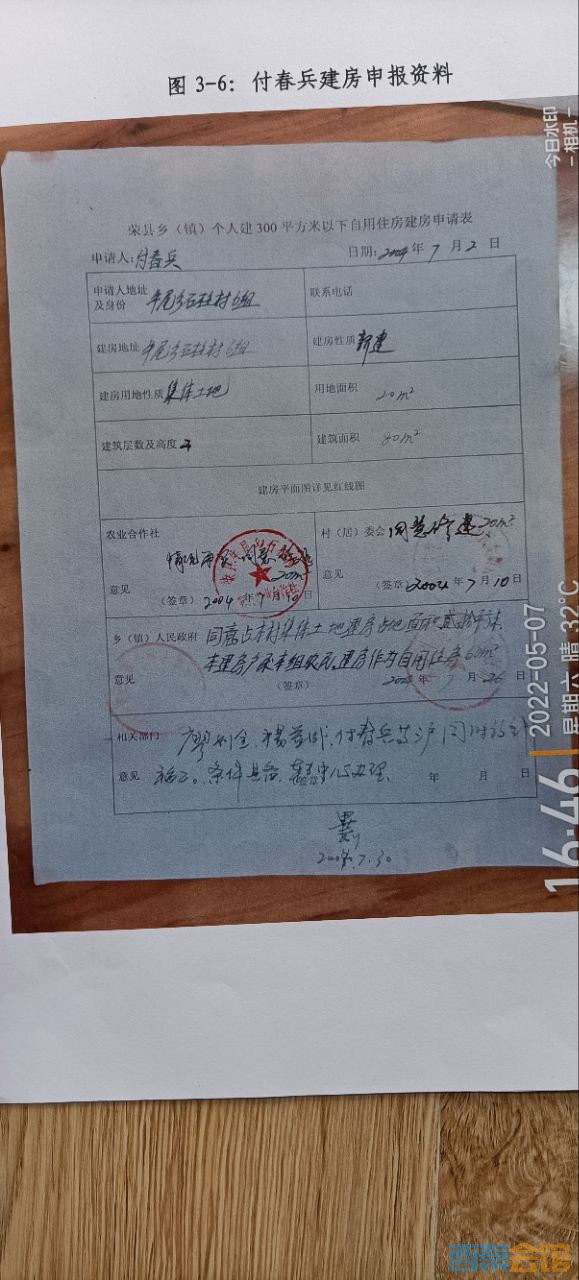 图 3-6：付春兵建房申报资料
今日水印
-相机-
荣县乡（镇）个人建300平方米以下自用住房建房申请表
申请人:付春兵 日期:2004年7月2日
申请人地址及身份 石柱村6组 联系电话
建房地址 石柱村6组 建房性质 新建
建房用地性质 集体土地 用地面积 20m²
建筑层数及高度 建筑面积 80m²
建房平面图详见红线图
农业合作社 村（居）委会 同意修建20m²
情况 同意 20m²
意见 意见
（签章）2004年7月10日 （签章）2004年7月10日
乡（镇）人民政府 同意占本村集体土地建房占地面积贰拾平米
本组农民,建房作为自用住房
意见 （签章） 7月26日
相关部门 付春兵
意见 条件具备 办理 年 月 日
2004.7.30
16:46
2022-05-07
星期六 晴 32℃
西泵会馆